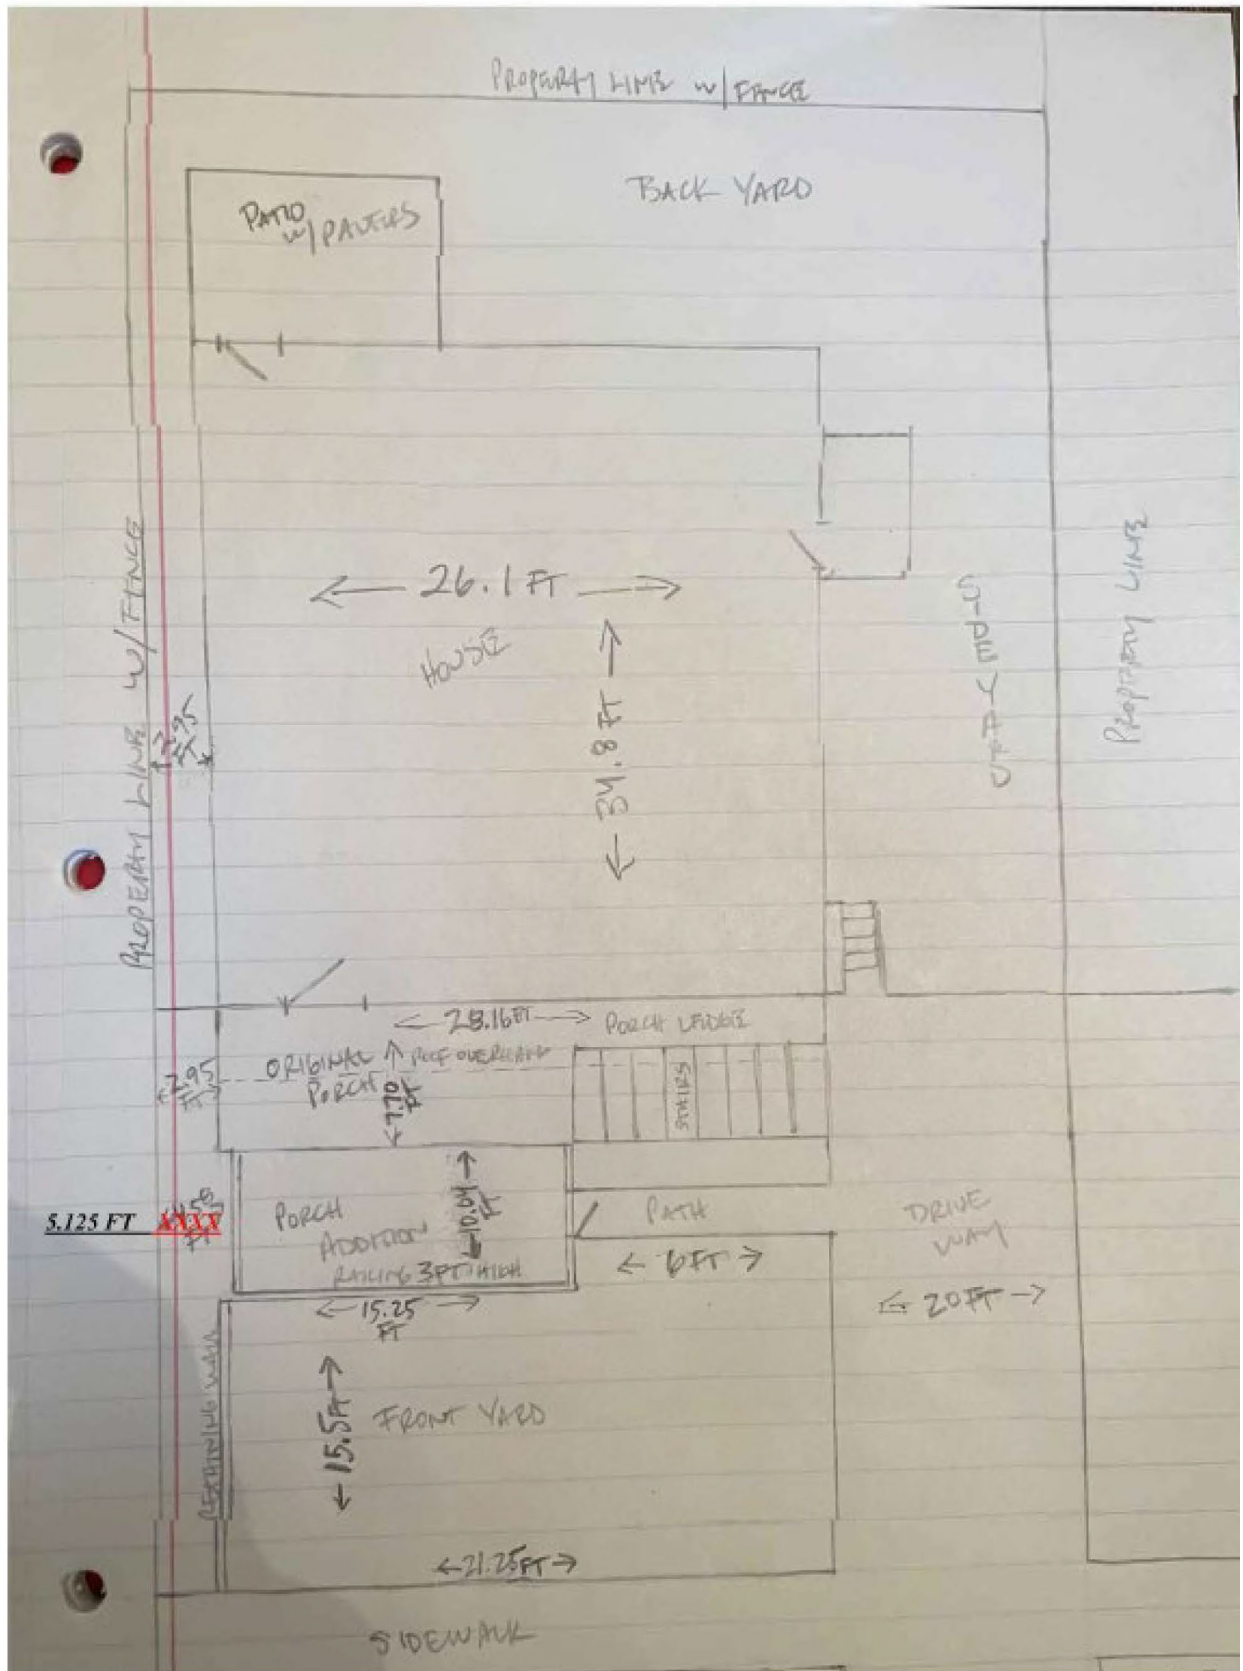 PROPERTY LINE w/ FENCE
BACK YARD
PATIO
w/ PAVERS
PROPERTY LINE W/ FENCE
26.1 FT
HOUSE
34.8 FT
2.95
FT
SIDE YARD
PROPERTY LINE
28.16 FT
PORCH LEDGE
ORIGINAL
PORCH
ROOF OVERHANG
7.70
FT
2.95
FT
STAIRS
5.125 FT XXXX
PORCH
ADDITION
RAILING 3 FT HIGH
10.04
FT
PATH
6 FT
DRIVE
WAY
20 FT
15.25
FT
RETAINING WALL
15.5 FT
FRONT YARD
21.25 FT
SIDEWALK